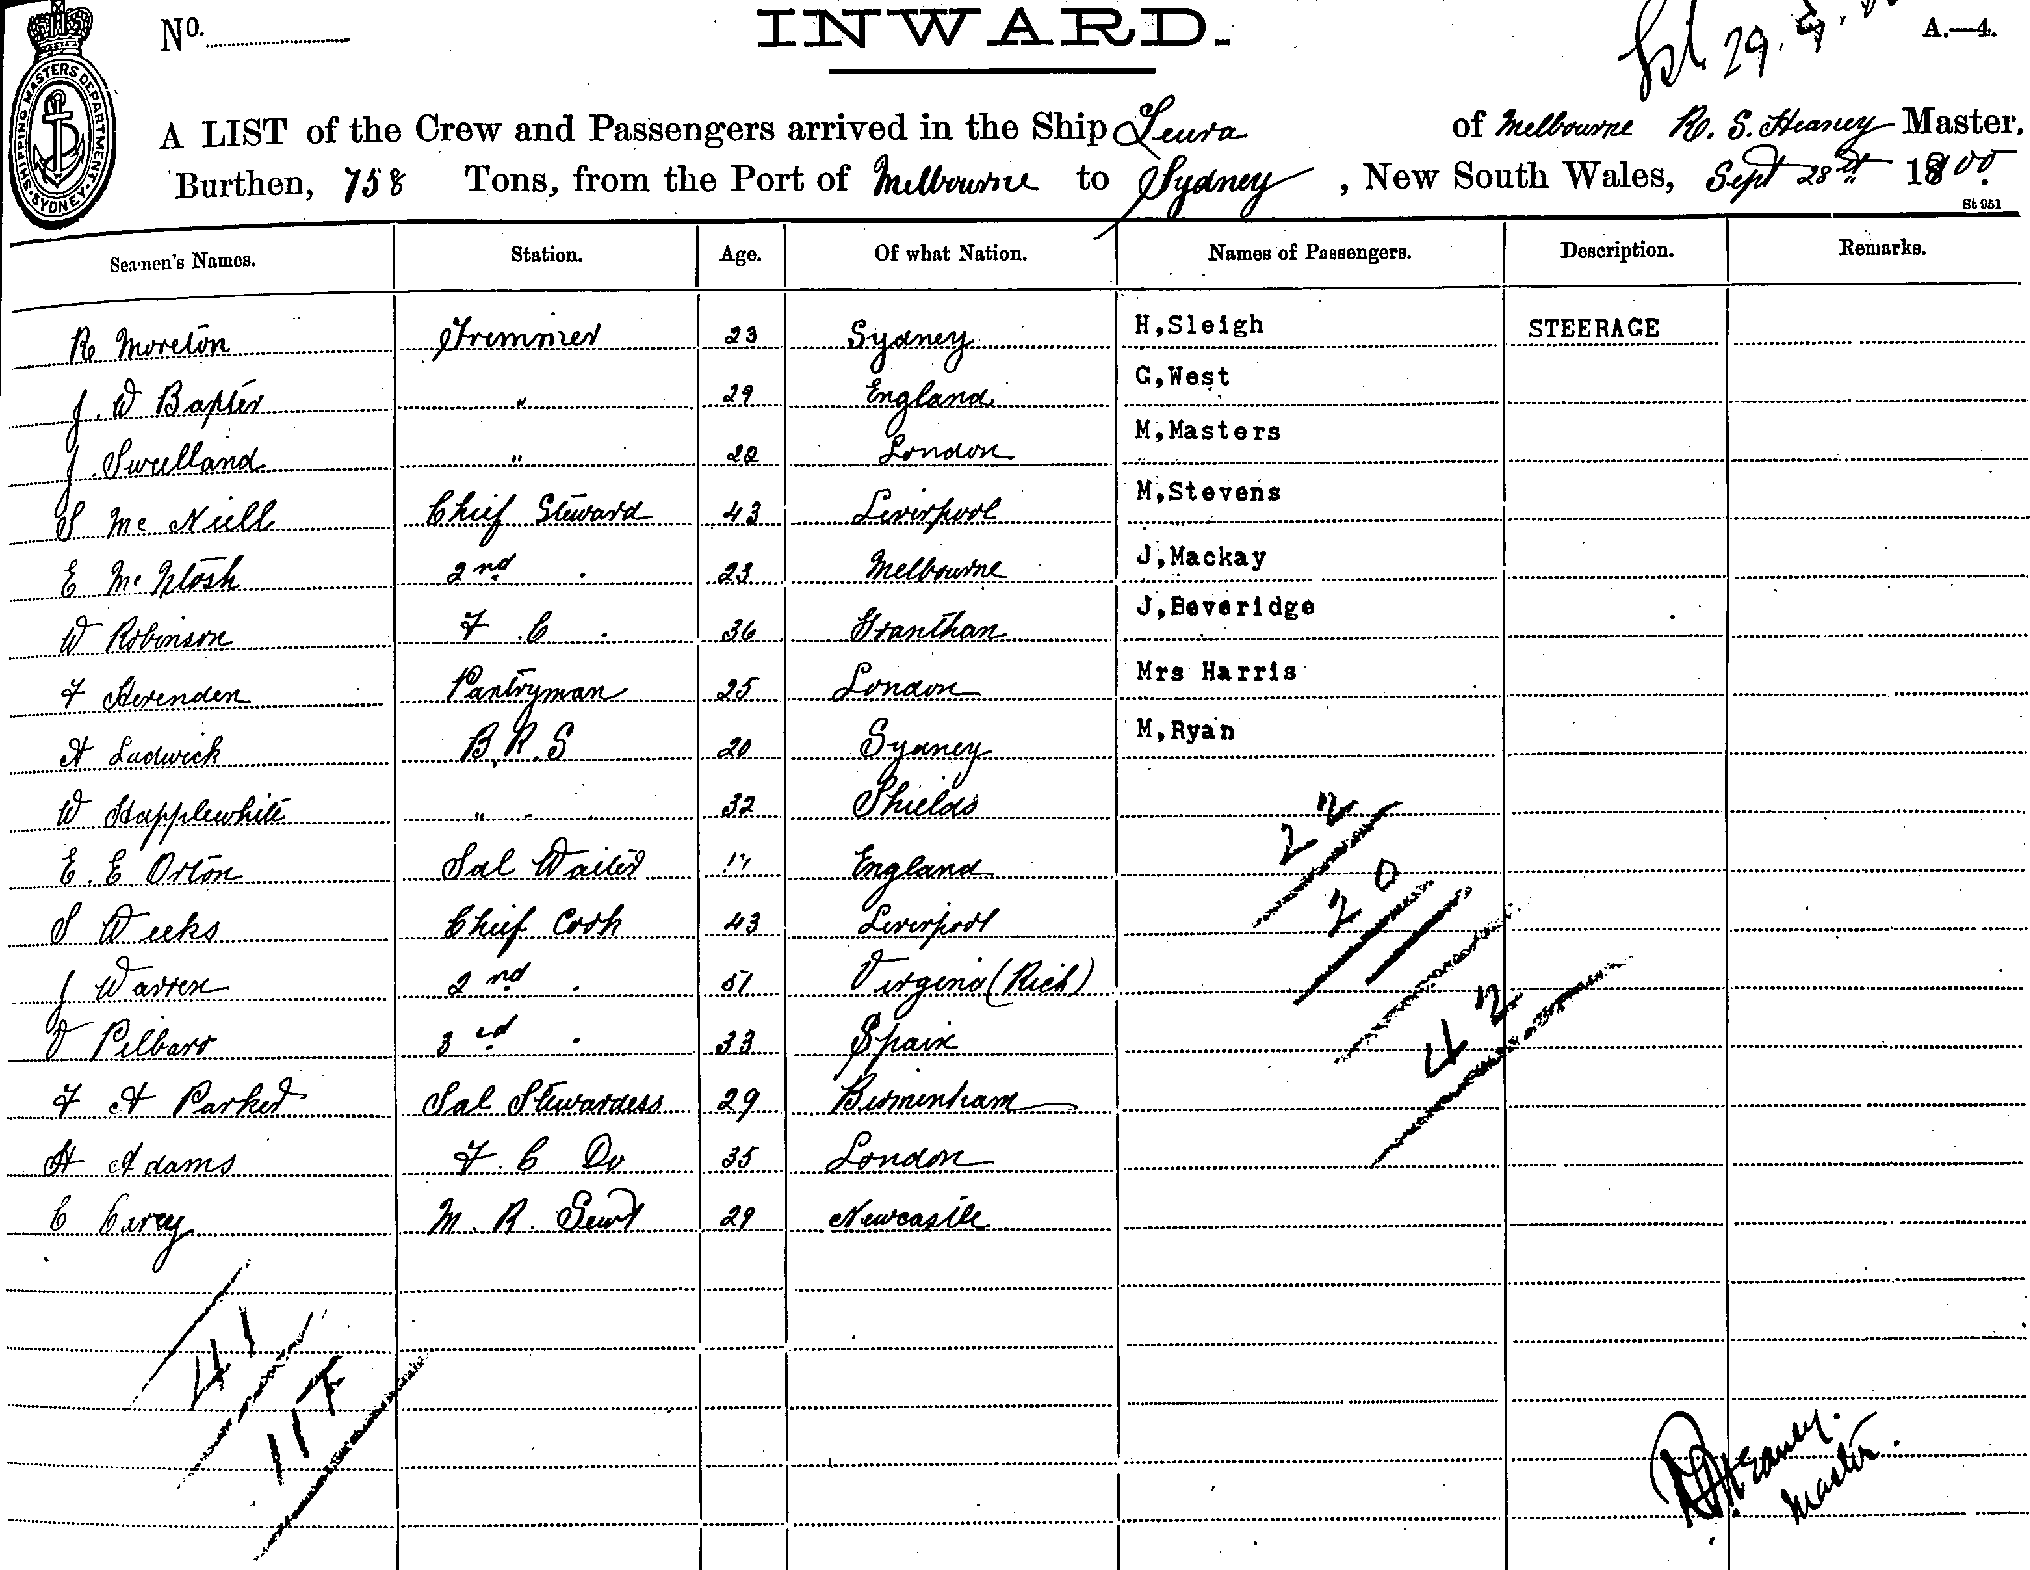 No.
INWARD.
29. 9.
A.—4.
SHIPPING MASTERS DEPARTMENT SYDNEY
A LIST of the Crew and Passengers arrived in the Ship Leura of Melbourne R. S. Heaney Master.
Burthen, 758 Tons, from the Port of Melbourne to Sydney, New South Wales, Sept 28th 1900.
St 951
Seamen's Names. Station. Age. Of what Nation. Names of Passengers. Description. Remarks.
R Moreton Trimmer 23 Sydney H,Sleigh STEERAGE
J. W Baxter " 29 England C,West
J. Swelland " London M,Masters
S Mc Niell Chief Steward 43 Liverpool M,Stevens
E McNtosh 2nd . 23 Melbourne J,Mackay
W Robinson F. C . 36 Granthan J,Beveridge
F Herenden Pantryman 25 London Mrs Harris
A Ludwick B.R.S 20 Sydney M,Ryan
W Happlewhite " 32 Shields
E. E Orton Sal Waiter England
S Weeks Chief Cook 43 Liverpool
J Warren 2nd . 51 Virgina (Rich)
Pilbaro 3rd . 33 Spain
F A Parker Sal Stewardess 29 Birminham
H Adams F. C Do 35 London
C Carey M. R. Sewt 29 Newcastle
22
20
42
41
117
R S Heaney.
Master.